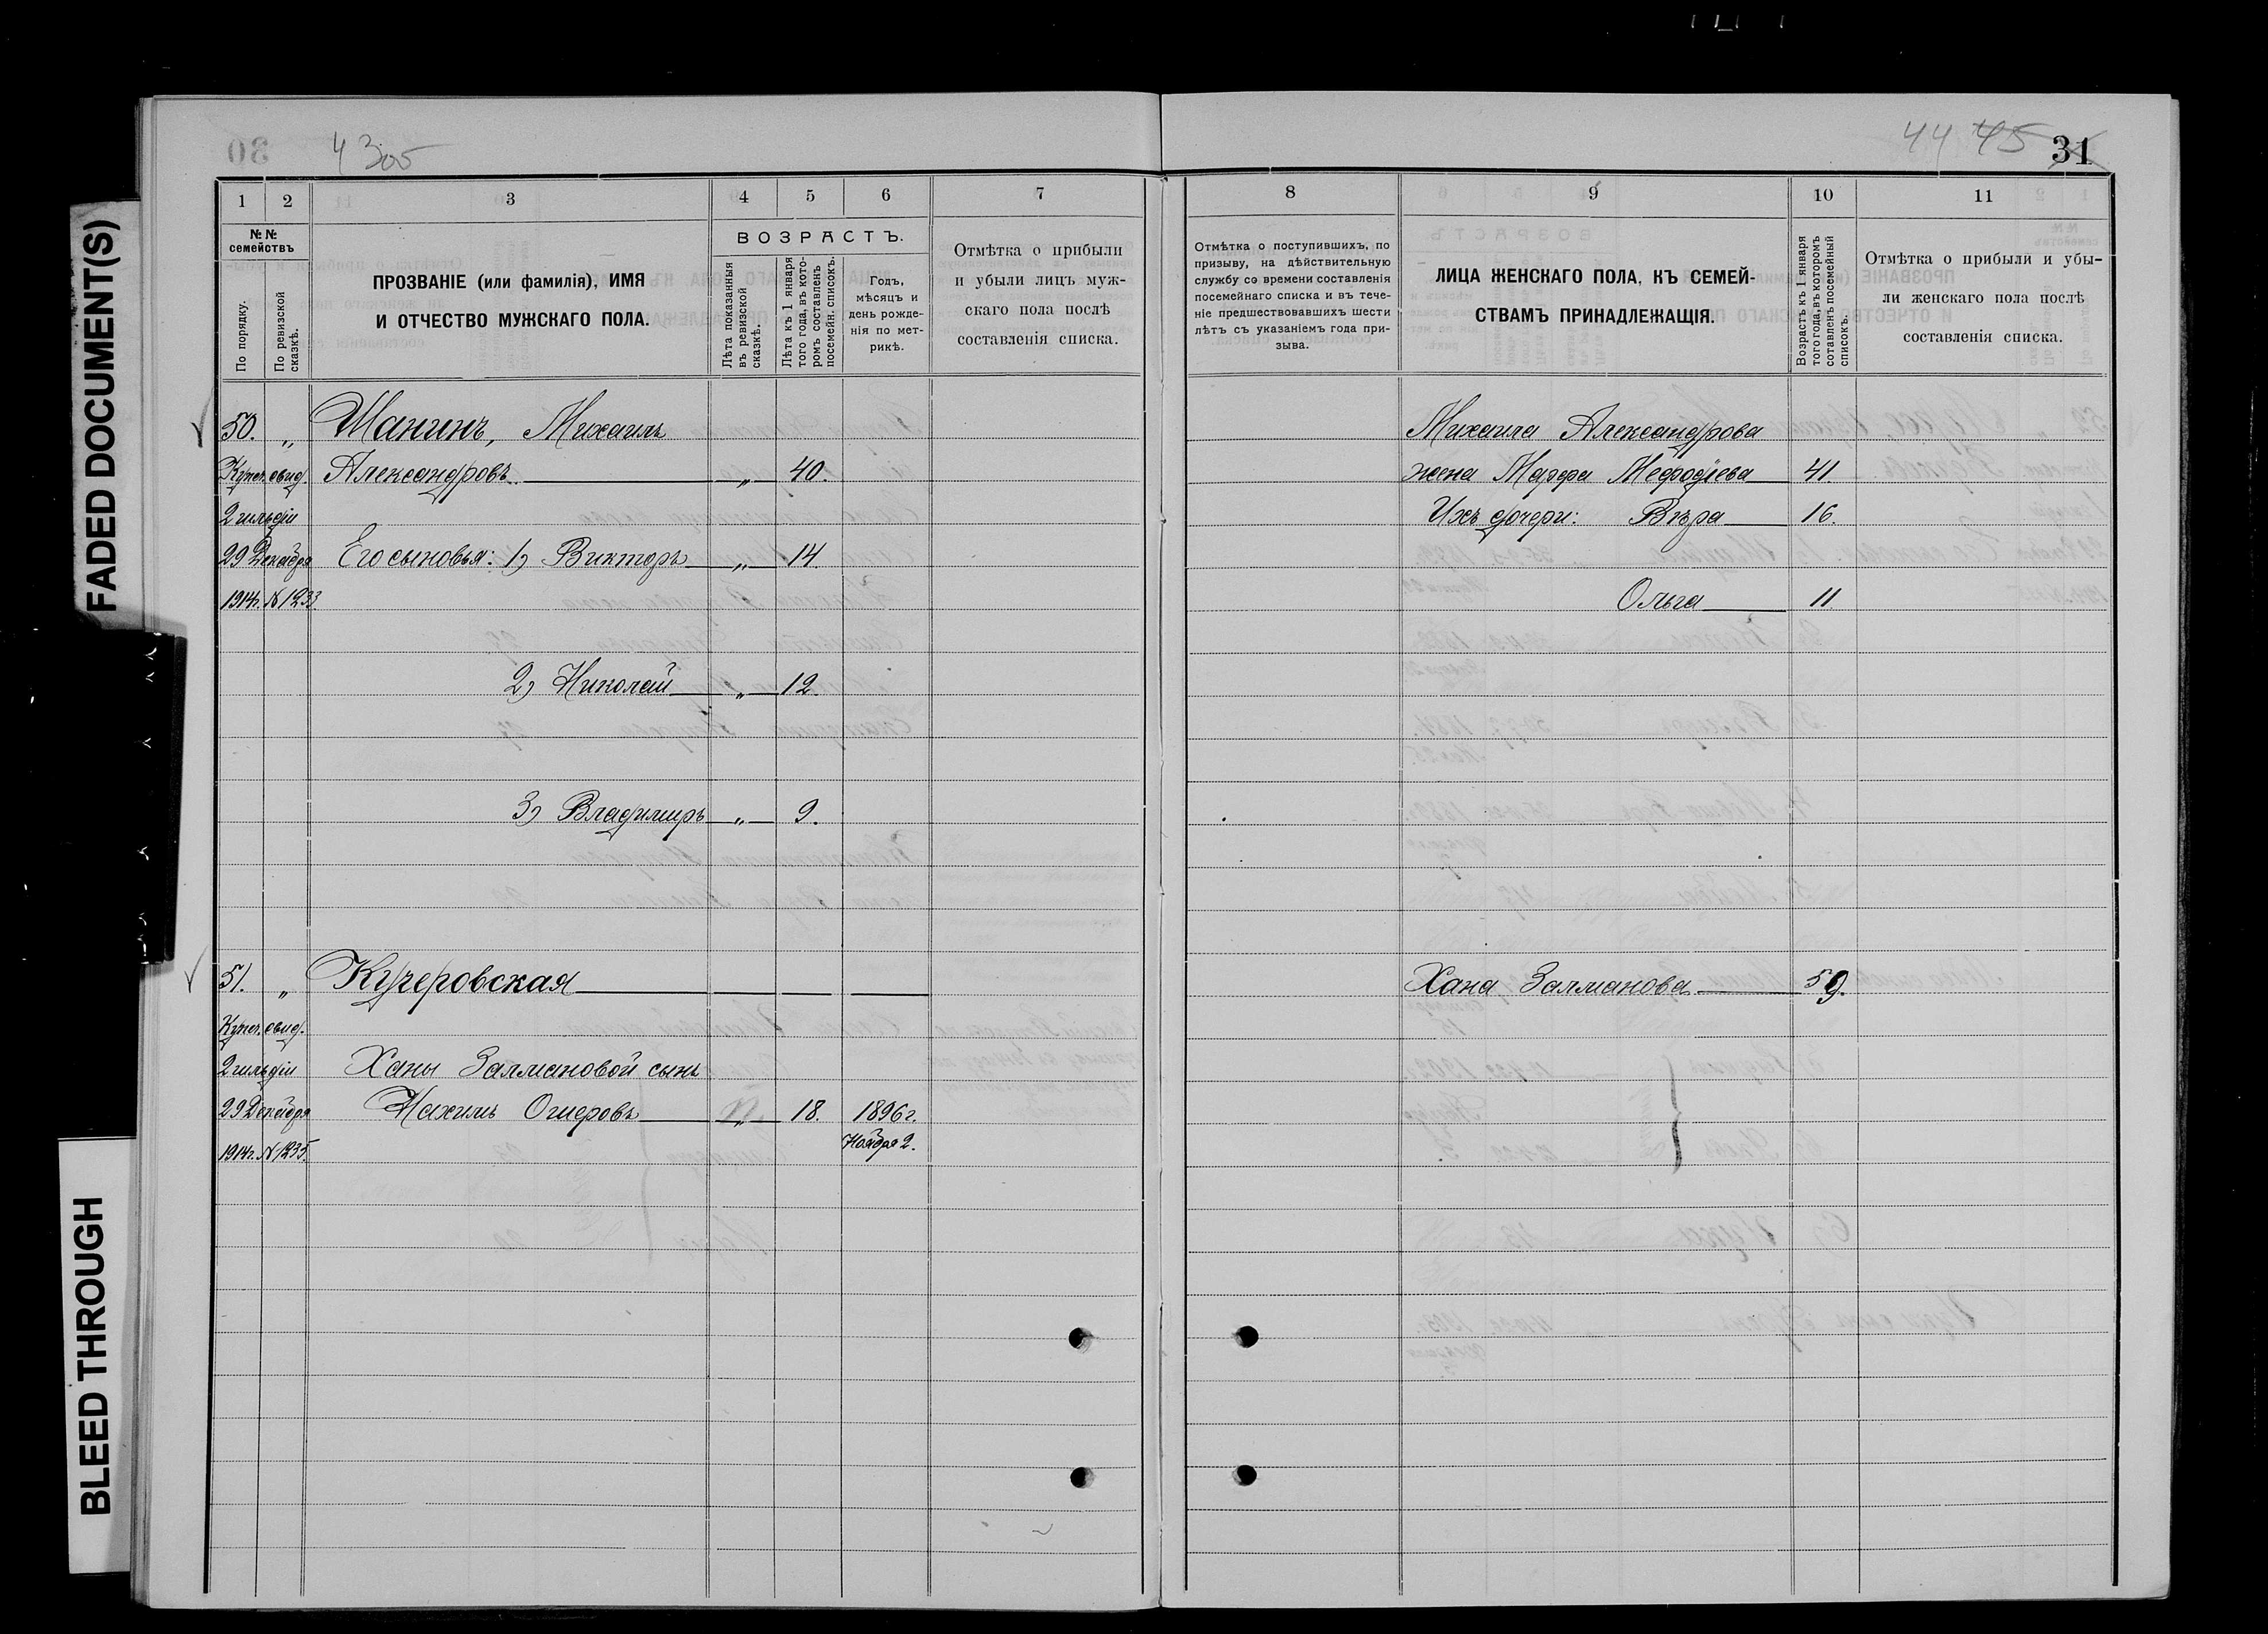 FADED DOCUMENT(S)
BLEED THROUGH
4 305
44 45 31
1 2 3 4 5 6 7
№№ семействъ
По порядку.
По ревизской сказкѣ.
ПРОЗВАНІЕ (или фамилія), ИМЯ
И ОТЧЕСТВО МУЖСКАГО ПОЛА.
ВОЗРАСТЪ.
Лѣта показанныя въ ревизской сказкѣ.
Лѣта къ 1 января того года, въ которомъ составленъ посемейн. списокъ.
Годъ, мѣсяцъ и день рожденія по метрикѣ.
Отмѣтка о прибыли
и убыли лицъ муж-
скаго пола послѣ
составленія списка.
8 9 10 11
Отмѣтка о поступившихъ, по
призыву, на дѣйствительную
службу со времени составленія
посемейнаго списка и въ тече-
ніе предшествовавшихъ шести
лѣтъ съ указаніемъ года при-
зыва.
ЛИЦА ЖЕНСКАГО ПОЛА, КЪ СЕМЕЙ-
СТВАМЪ ПРИНАДЛЕЖАЩІЯ.
Возрастъ къ 1 января
того года, въ которомъ
сотавленъ посемейный
списокъ.
Отмѣтка о прибыли и убы-
ли женскаго пола послѣ
составленія списка.
50. „ Шанинъ, Михаилъ
Купеч. свид. Александровъ „ 40.
2 гильдіи
29 Декабря Его сыновья: 1) Викторъ „ 14.
1914г. № 1233
2) Николай „ 12.
3) Владимиръ „ 9.
Михаила Александрова
жена Марфа Мефодіева 41
Ихъ дочери: Вѣра 16.
Ольга 11.
51. „ Кучеровская
Купеч. свид.
2 гильдіи Ханы Залмановой сынъ
29 Декабря Нахимъ Ошеровъ „ 18. 1896 г.
1914г. № 1235. Ноября 2.
Хана Залманова 59.